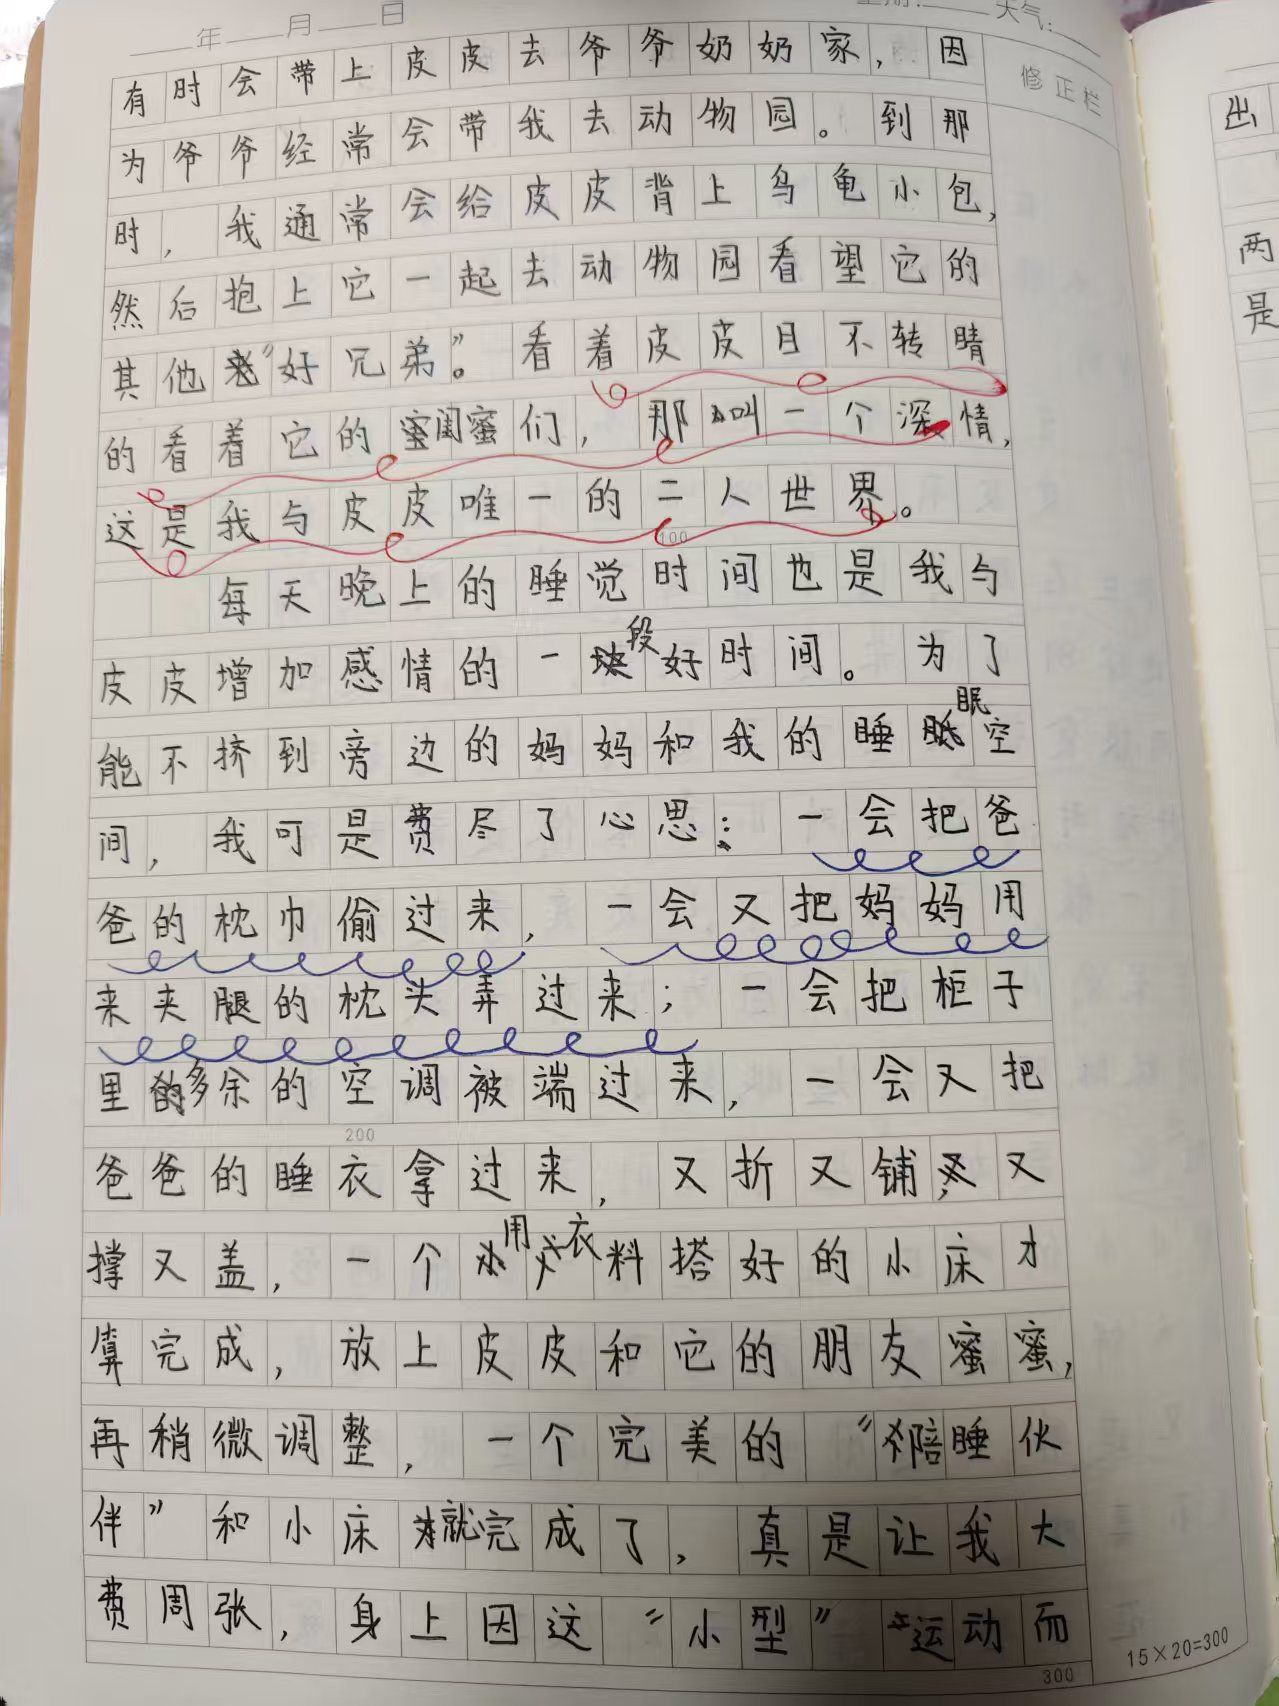 年 月 日
天气:
修正栏
有时会带上皮皮去爷爷奶奶家,因
为爷爷经常会带我去动物园。到那
时,我通常会给皮皮背上乌龟小包,
然后抱上它一起去动物园看望它的
其他“好兄弟”。看着皮皮目不转睛
的看着它的闺蜜们,那叫一个深情,
这是我与皮皮唯一的二人世界。
100
每天晚上的睡觉时间也是我与
皮皮增加感情的一段好时间。为了
能不挤到旁边的妈妈和我的睡眠空
间,我可是费尽了心思:一会把爸
爸的枕巾偷过来,一会又把妈妈用
来夹腿的枕头弄过来;一会把柜子
里多余的空调被端过来,一会又把
200
爸爸的睡衣拿过来,又折又铺,又
撑又盖,一个用衣料搭好的小床才
算完成,放上皮皮和它的朋友蜜蜜,
再稍微调整,一个完美的“陪睡伙
伴”和小床就完成了,真是让我大
费周张,身上因这“小型”运动而
300
15×20=300
出
两
是